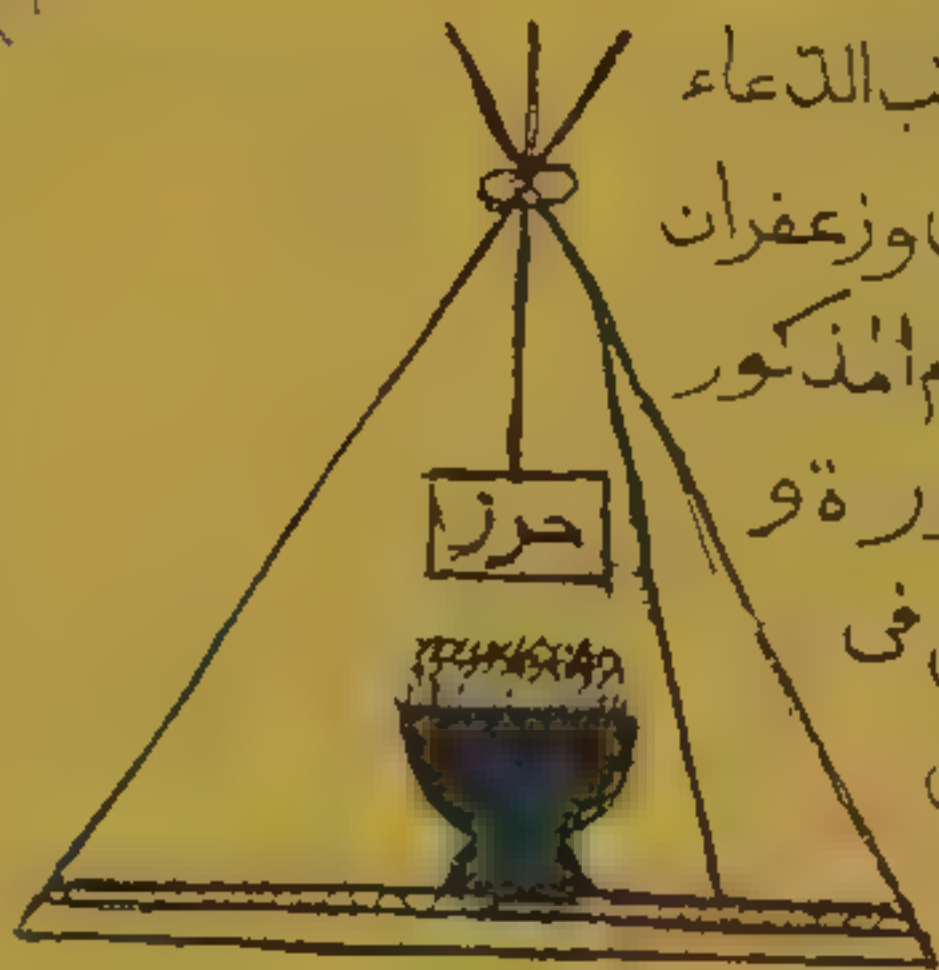 الدعاء
وزعفران
المذكور
رة و
فى
حرز